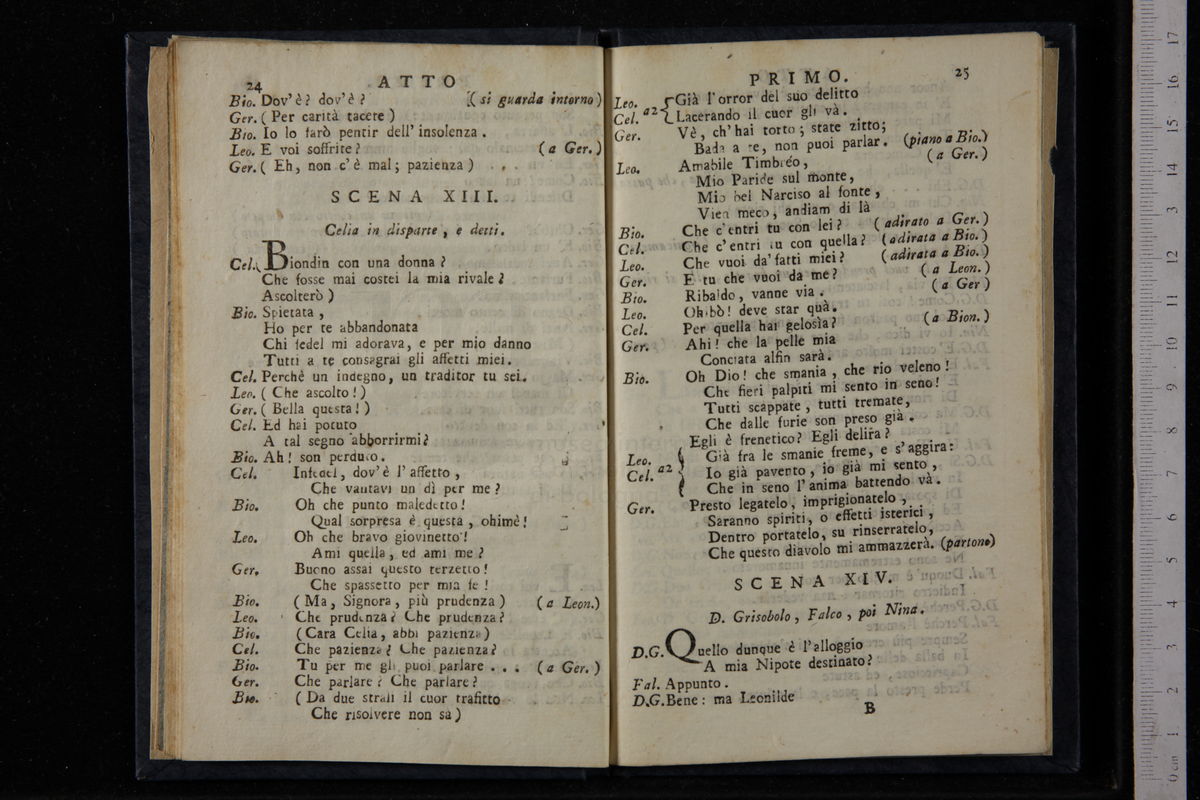 24 ATTO
Bio. Dov' è? dov' è? [( si guarda intorno)
Ger. ( Per carità tacete )
Bio. Io lo farò pentir dell' insolenza .
Leo. E voi soffrite? (a Ger.)
Ger. ( Eh, non c' è mal; pazienza )
SCENA XIII.
Celia in disparte, e detti.
Cel.( Biondin con una donna?
Che fosse mai costei la mia rivale?
Ascolterò )
Bio. Spietata ,
Ho per te abbandonata
Chi fedel mi adorava, e per mio danno
Tutti a te consagrai gli affetti miei.
Cel. Perchè un indegno, un traditor tu sei.
Leo. ( Che ascolto! )
Ger. ( Bella questa! )
Cel. Ed hai potuto
A tal segno abborrirmi?
Bio. Ah! son perduto.
Cel. Infedel, dov' è l' affetto ,
Che vantavi un dì per me?
Bio. Oh che punto maledetto!
Qual sorpresa è questa , ohimè!
Leo. Oh che bravo giovinetto!
Ami quella, ed ami me?
Ger. Buono assai questo terzetto!
Che spassetto per mia fe!
Bio. ( Ma, Signora, più prudenza) (a Leon.)
Leo. Che prudenza? Che prudenza?
Bio. (Cara Celia, abbi pazienza)
Cel. Che pazienza? Che pazienza?
Bio. Tu per me gli puoi parlare . . . (a Ger.)
Ger. Che parlare? Che parlare?
Bio. ( Da due strali il cuor trafitto
Che risolvere non sa)
PRIMO. 25
Leo. Cel. a2 { Già l'orror del suo delitto
Lacerando il cuor gli và.
Ger. Vè, ch' hai torto; state zitto;
Bada a te, non puoi parlar. (piano a Bio.)
Leo. Amabile Timbréo, (a Ger.)
Mio Paride sul monte,
Mio bel Narciso al fonte,
Vien meco, andiam di là
Bio. Che c'entri tu con lei? (adirato a Ger.)
Cel. Che c' entri tu con quella? (adirata a Bio.)
Leo. Che vuoi da' fatti miei? (adirata a Bio.)
Ger. E tu che vuoi da me? (a Leon.)
Bio. Ribaldo, vanne via . (a Ger)
Leo. Ohibò! deve star quà.
Cel. Per quella hai gelosìa? (a Bion.)
Ger. Ahi! che la pelle mia
Conciata alfin sarà.
Bio. Oh Dio! che smania , che rio veleno!
Che fieri palpiti mi sento in seno!
Tutti scappate , tutti tremate,
Che dalle furie son preso già .
Egli è frenetico? Egli delira?
Leo. Cel. a2 { Già fra le smanie freme, e s'aggira:
Io già pavento, io già mi sento ,
Che in seno l'anima battendo và.
Ger. Presto legatelo, imprigionatelo ,
Saranno spiriti, o effetti isterici ,
Dentro portatelo, su rinserratelo,
Che questo diavolo mi ammazzerà. (partono)
SCENA XIV.
D. Grisobolo, Falco, poi Nina.
D.G. Quello dunque è l'alloggio
A mia Nipote destinato?
Fal. Appunto.
D.G. Bene: ma Leonilde
B
0 cm 1 2 3 4 5 6 7 8 9 10 11 12 13 14 15 16 17